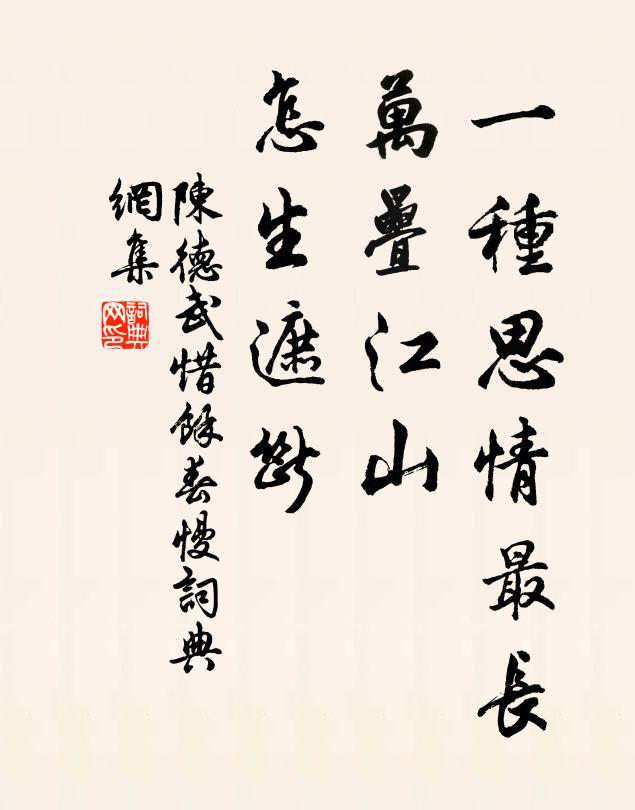 一種思情最長
萬疊江山
怎生遮斷
陳德武惜餘春慢詞典
網集
詞典
网印